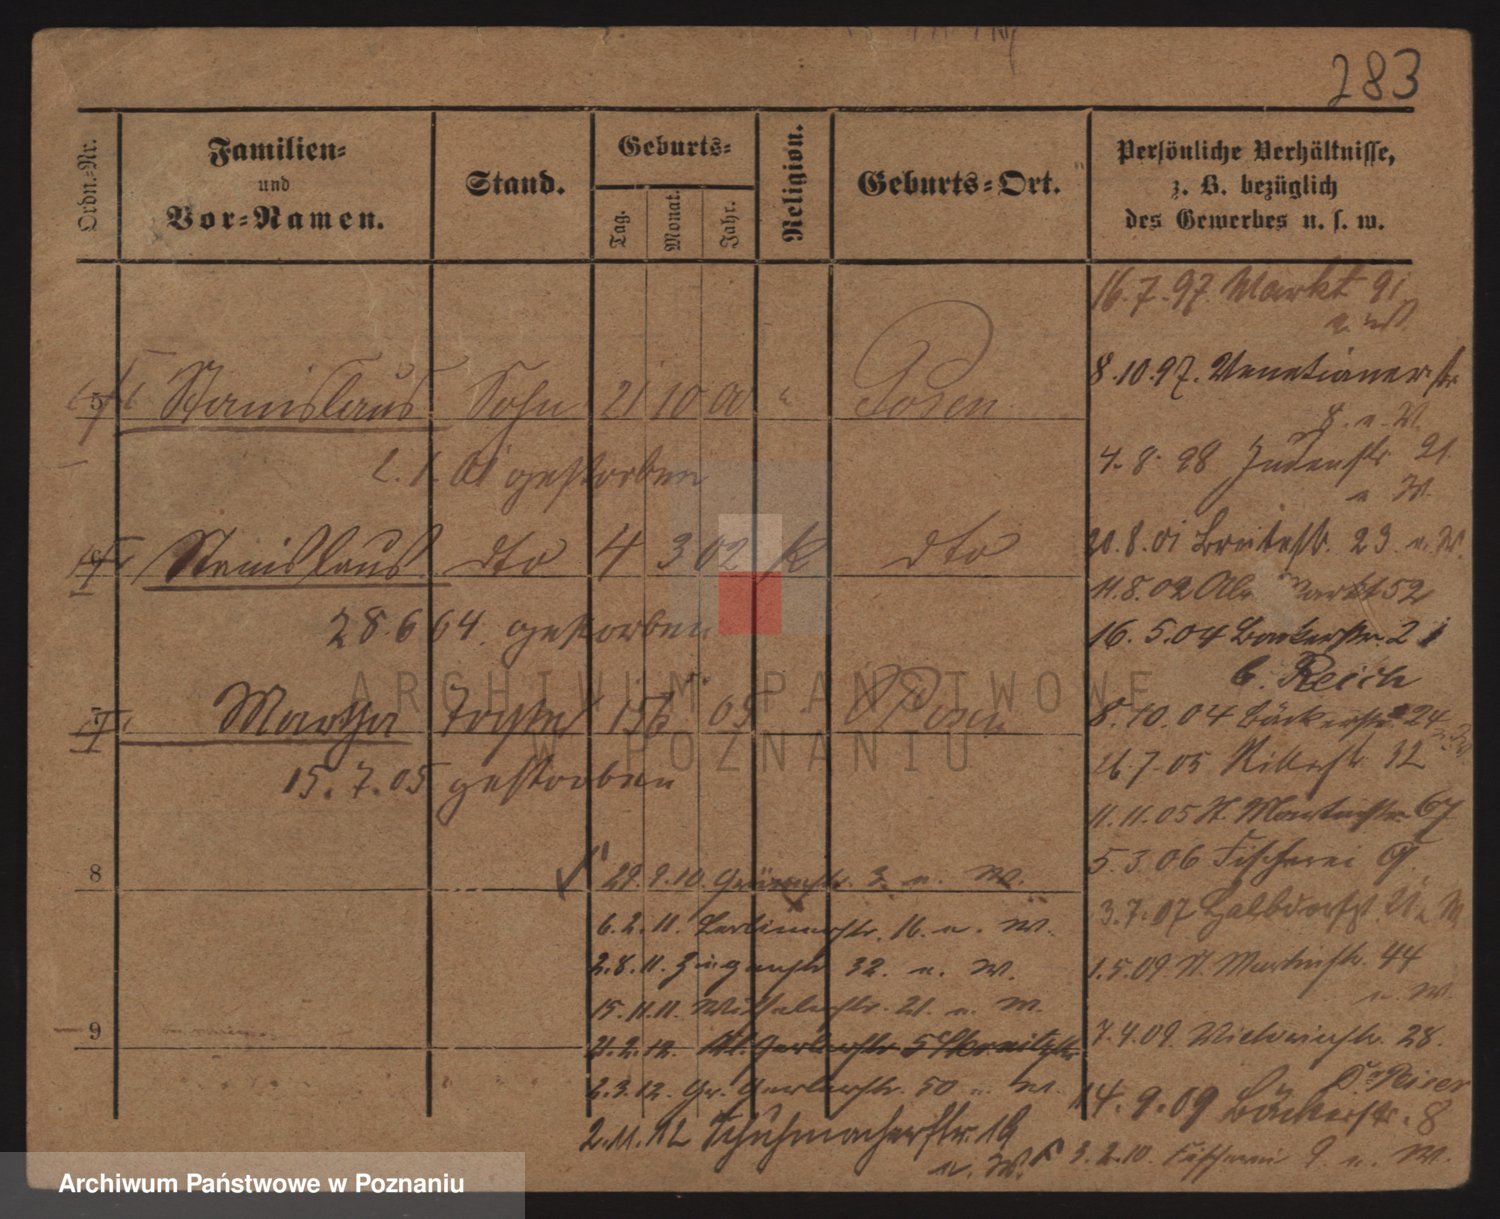 283
Ordn.-Nr.
Familien-
und
Vor-Namen.
Stand.
Geburts-
Tag.
Monat.
Jahr.
Religion.
Geburts-Ort.
Persönliche Verhältnisse,
z. B. bezüglich
des Gewerbes u. s. w.
16.7.97 Markt 91
u. W.
8.10.97. Venetianerstr
8. u. W.
5 Stanislaus Sohn 21 10 00 " Posen
4.8.98 Judenstr 21
u W.
2.1.01 gestorben
6 Stanislaus dto 4 3 02 K dto
20.8.01 Breitestr. 23 u. W.
11.8.02 Alt Markt 52
28.6 04. gestorben
16.5.04 Bäckerstr. 21
b. Reich
7 Martha Tochter 15 6 05 Posen
8.10.04 Bäckerstr 24
26.7.05 Ritterstr 32
15.7.05 gestorben
11.11.05 St. Martinstr. 67
5.3.06 Fischerei 9.
8
29.9.10. Grünestr. 3 u. W.
3.7.07 Halbdorfst. 21 u W
6.2.11. Berlinerstr. 16. u. W.
2.8.11. 32. u. W.
1.5.09 St. Martinstr. 44
u. W.
15.11.11. 21. u. W.
9
21.2.12. Gr. Gerberstr 5
7.4.09. Victoriastr. 28.
6.3.12. Gr. Gerberstr. 50 u. W.
14.9.09 Bäckerstr. 8
2.11.12 Schuhmacherstr. 19
u. W.
3.2.10. Fischerei 9 u. W.
ARCHIWUM PAŃSTWOWE
W POZNANIU
Archiwum Państwowe w Poznaniu